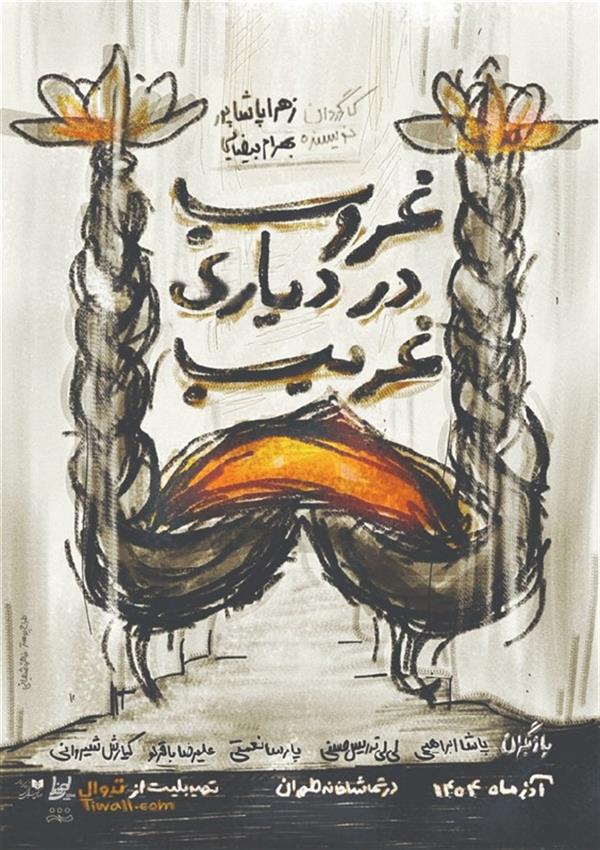 کارگردان زهرا پاشاپور
نویسنده بهرام بیضایی
غروب
در دیاری
غریب
بازیگران پاشا ابراهیمی لی لی تدریس حسنی پارسا نعمتی علیرضا باقرلو کیارش شیروانی
آذر ماه ۱۴۰۴ در تماشاخانه طهران تهیه بلیت از تیوال
Tiwall.com